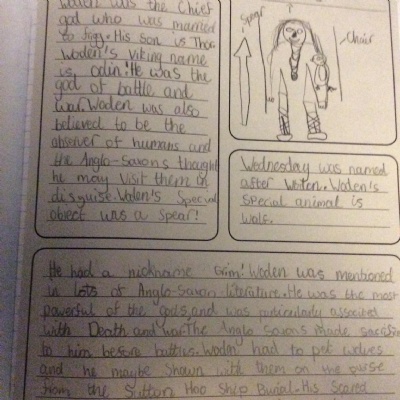 Woden was the Chief
god who was married
to frigg. His son is Thor
Woden's Viking name
is, odin! He was the
god of battle and
war. Woden was also
believed to be the
observer of humans and
the Anglo-Saxons thought
he may visit them in
disguise. Woden's Special
object was a spear!
Spear
Chair
Wednesday was named
after Woten. Woden's
special animal is
wolf.
He had a nickname Grim! Woden was mentioned
in lots of Anglo-Saxon-literature. He was the most
powerful of the gods and was particularly associted
with Death and war. The Anglo saxons made sacrifice
to him before battles. Woden had to pet wolves
and he maybe shown with them on the purse
from the Sutton Hoo Ship Burial. His Scared